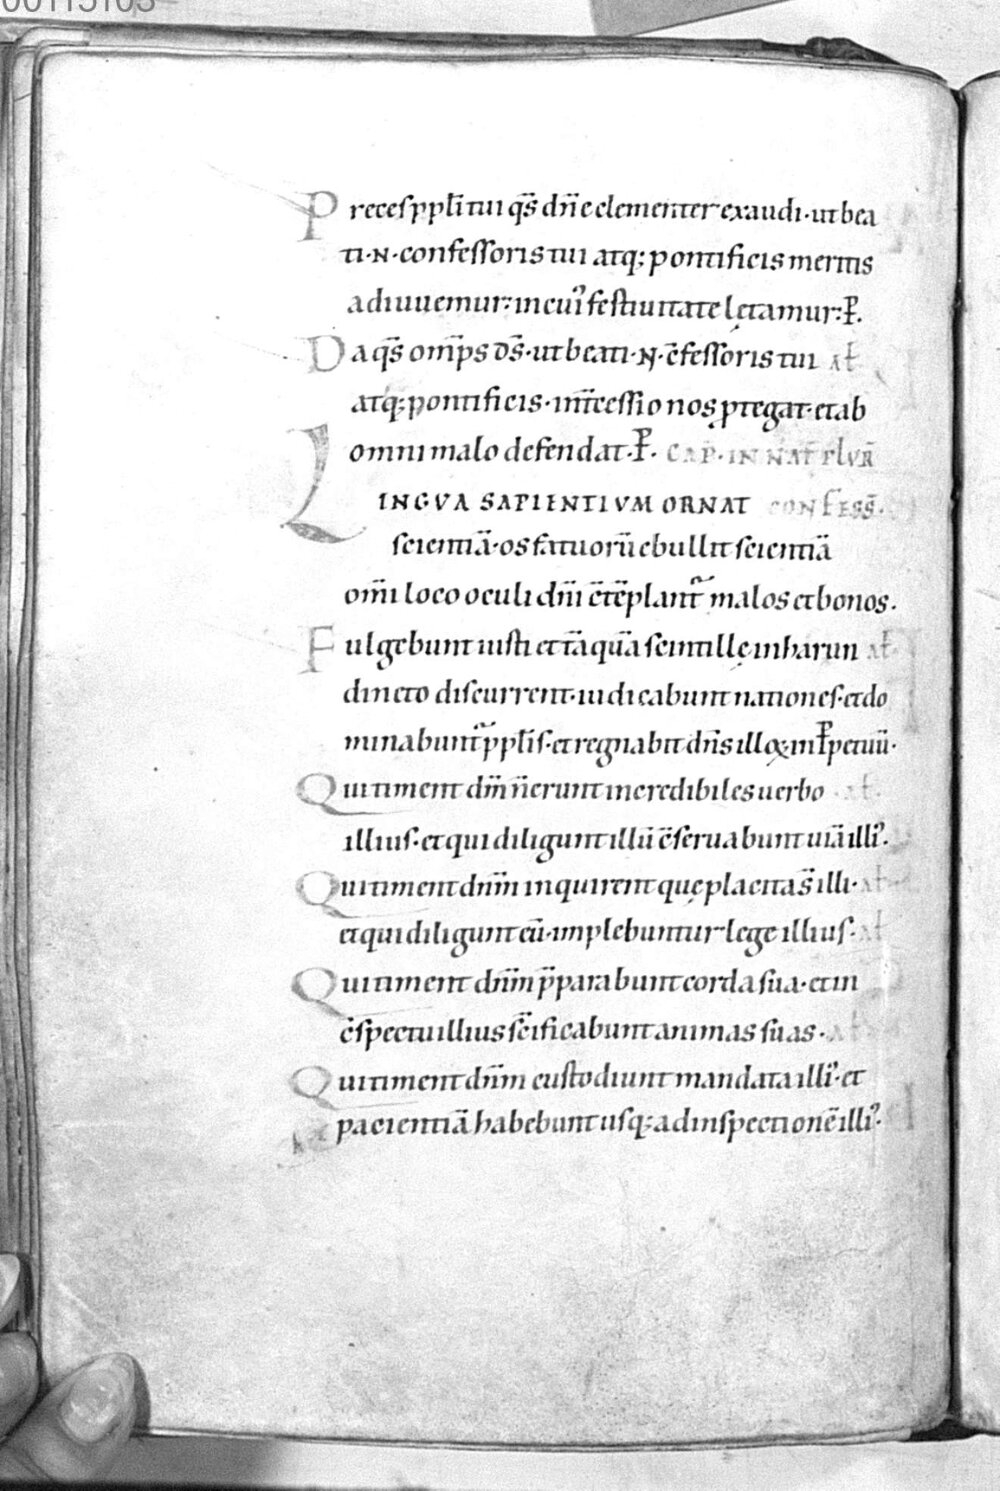 Preces ppl̄i tui q̄s dn̄e clementer exaudi· ut bea
ti·N·confessoris tui atq; pontificis meritis
adiuuemur: in cui᾽ festiuitate lętamur: P̄.
Da q̄s om̄ps ds̄· ut beati·N· c̄fessoris tui al̄
atq; pontificis· int̄cessio nos ꝓtegat· et ab
omni malo defendat· P̄. CAP̄· IN NAT̄ PLVR̄
LINGVA SAPIENTIVM ORNAT CONFESS̄.
scientiā· os fatuorū ebullit scientiā
om̄i loco oculi dn̄i c̄tēplant᷑ malos et bonos.
Fulgebunt iusti et tāquā scintillę in harun al̄
dineto discurrent· iudicabunt nationes· et do
minabunt᷑ ppl̄is· et regnabit dn̄s illoꝝ in ꝑpetuū·
Qui timent dn̄m n̄ erunt incredibiles uerbo al̄.
illius· et qui diligunt illū c̄seruabunt uiā illi᾽.
Qui timent dn̄m inquirent quę placita s̄ illi· al̄
et qui diligunt eū· implebuntur lege illius· al̄
Qui timent dn̄m p̄parabunt corda sua· et in
c̄spectu illius sc̄ificabunt animas suas· al̄
Qui timent dn̄m custodiunt mandata illi᾽· et
pacientiā habebunt usq; ad inspectionē illi᾽.